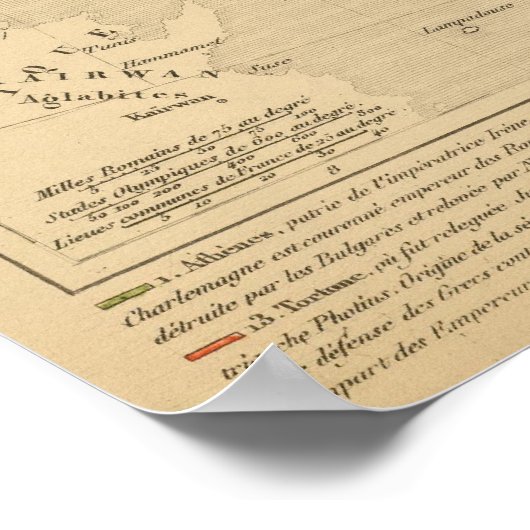 Tunis
Hammamet
KAIRWAN
Suse
Aglabites
Kairwan
Lampadouse
Milles Romains de 75 au degré
5 25 50 75 100
Stades Olympiques de 600 au degré.
50 100 200 400 600 800
Lieues communes de France de 25 au degré
5 10 20 30 40
8
1. Athènes, patrie de l'impératrice Irène
Charlemagne est couronné empereur des
détruite par les Bulgares et relevée par
13. Tortone, où fut releguée
Photius. Origine de la
défense des Grecs
part des Empereur